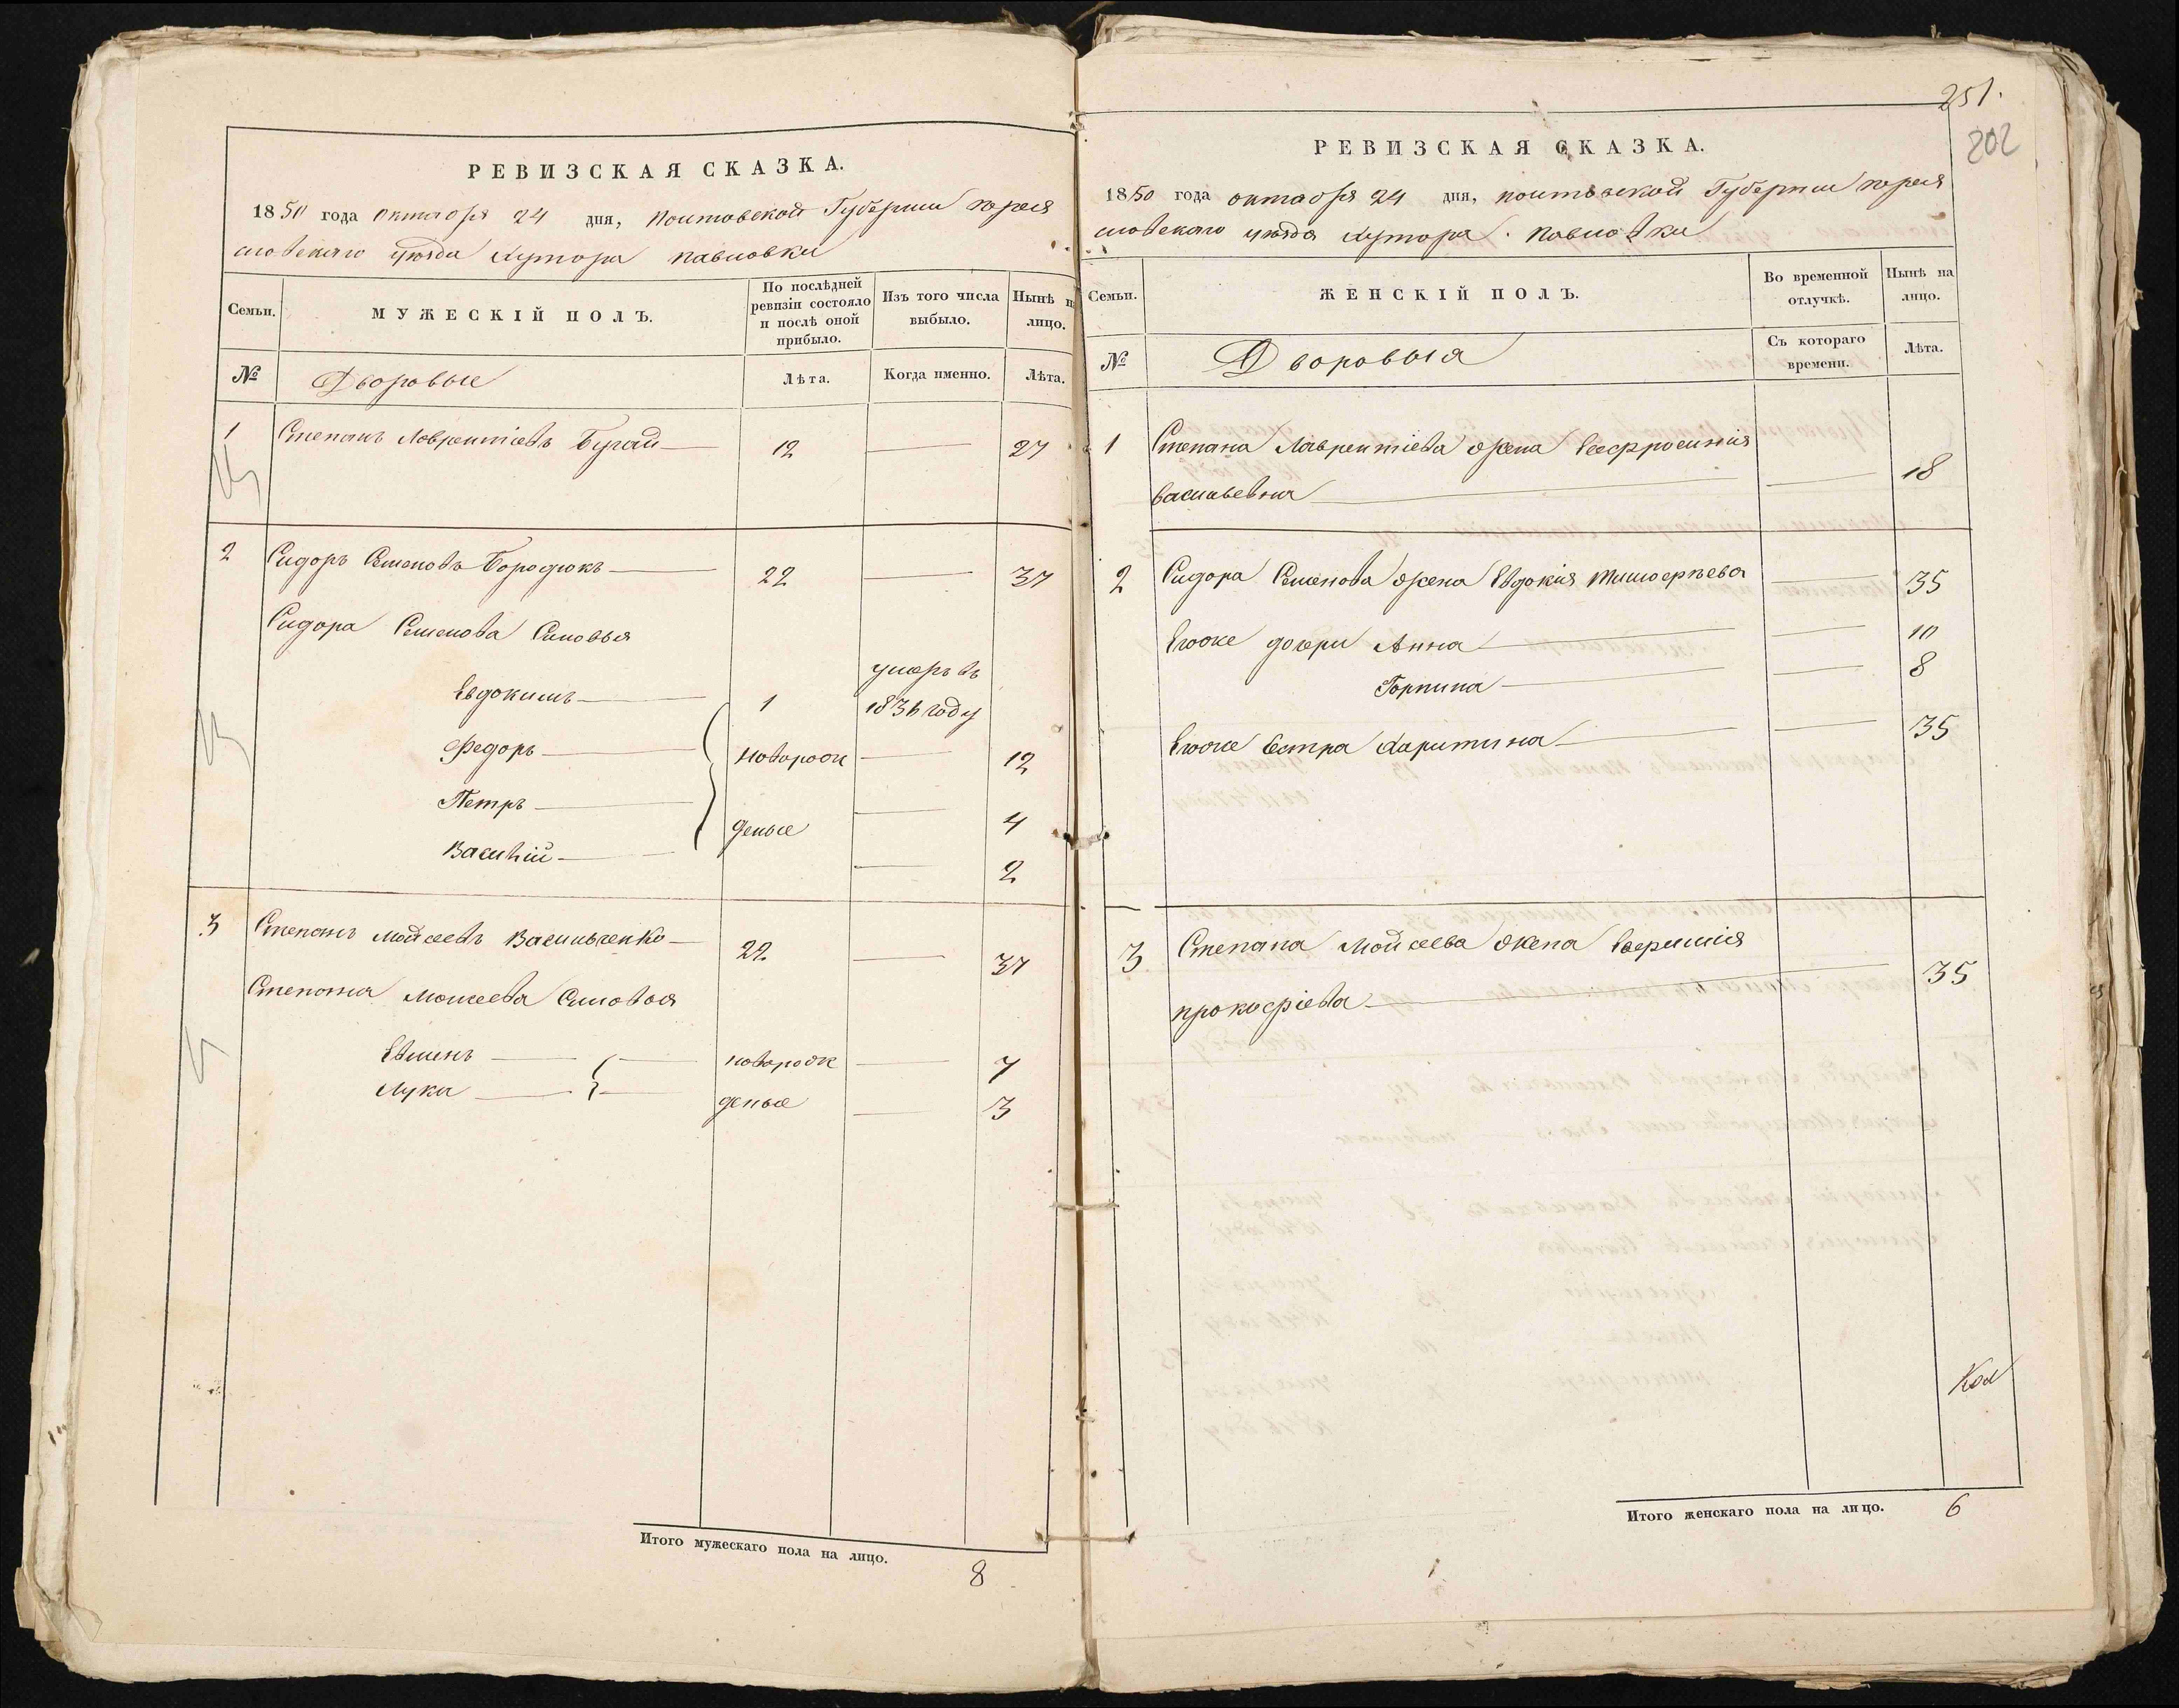 РЕВИЗСКАЯ СКАЗКА.
1850 года октября 24 дня, Полтавской Губернии переяс
лавскаго уезда хутора павловки
Семьи.
МУЖЕСКІЙ ПОЛЪ.
По послѣдней ревизіи состояло и послѣ оной прибыло.
Изъ того числа выбыло.
Нынѣ на лицо.
№ Дворовые Лѣта. Когда именно. Лѣта.
1 Степанъ Лаврентіевъ Бугай 12 27
2 Сидоръ Семеновъ Бородюкъ 22 37
Сидора Семенова Сыновья
умеръ въ
Евдокимъ 1 1836 году
Федоръ новорож 12
Петръ деные 4
Василій 2
3 Степанъ Мойсеевъ Васильченко 22 37
Степана Моисеева Сыновья
Евменъ новорож 7
Лука деные 3
Итого мужескаго пола на лицо. 8
251.
202
РЕВИЗСКАЯ СКАЗКА.
1850 года октября 24 дня, полтавской Губернии переяс
лавскаго уезда хутора павловки
Семьи.
ЖЕНСКІЙ ПОЛЪ.
Во временной отлучкѣ.
Нынѣ на лицо.
№ Дворовыя Съ котораго времени. Лѣта.
1 Степана Лаврентіева жена Евфросинія
васильевна 18
2 Сидора Семенова жена Евдокия тимофеева 35
Егоже дочери Анна 10
Горпина 8
Егоже Сестра Харитина 35
3 Степана Мойсеева жена Евфимія
прокофіева 35
Итого женскаго пола на лицо. 6